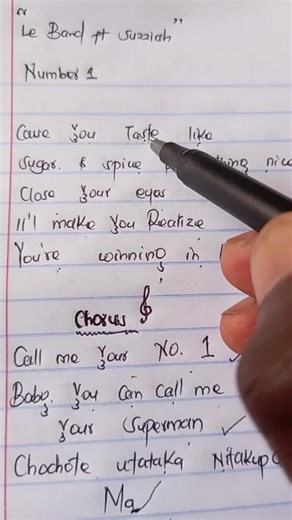 "Le Band ft Suzziah"
Number 1
Cause You Taste like
Sugar & spice nice
Close Your eyes
I'll make You Realize
You're winning in
Chorus
Call me Your No. 1
Babo, You Can Call me
Your Superman
Chochote utataka
Ma